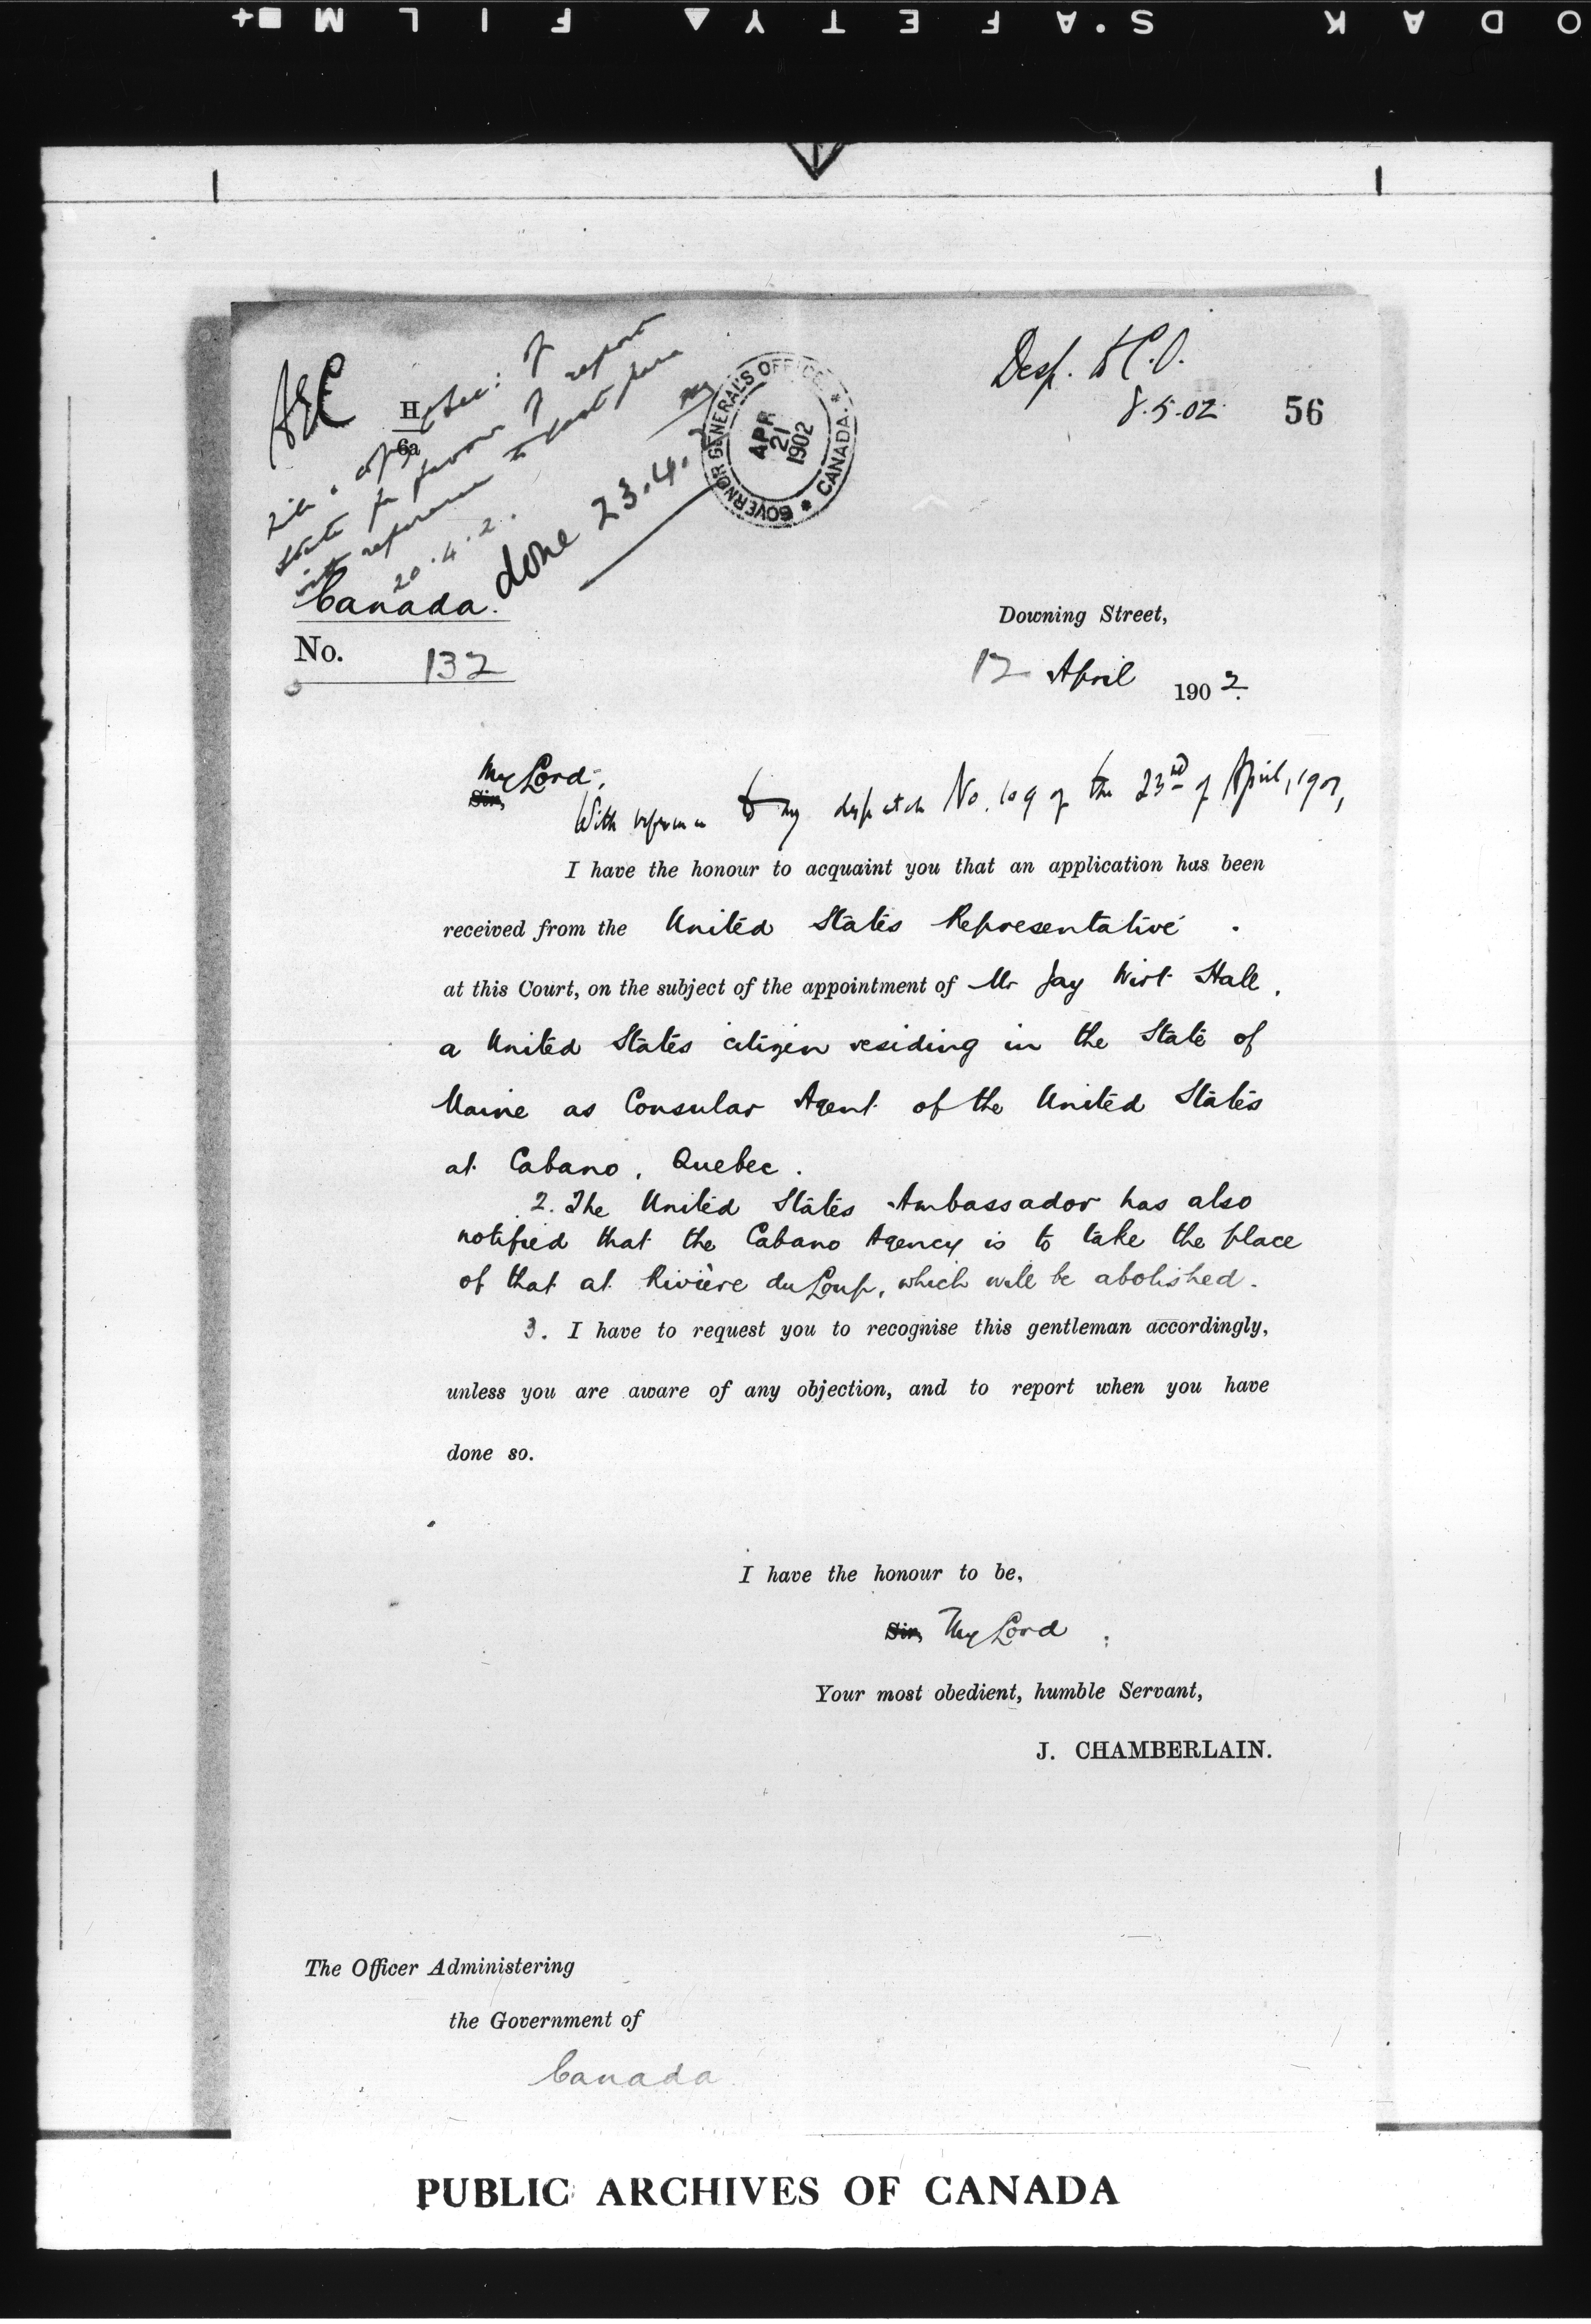 KODAK S.AFETY FILM
Desp. to C.O.
8.5.02
56
H
6a
GOVERNOR GENERAL'S OFFICE * CANADA. *
APR
21
1902
20.4.2.
done 23.4.2
Canada.
No. 132
Downing Street,
12 April 1902.
My Lord,
Sir,
With reference to my despatch No. 109 of the 23rd of April, 1901,
I have the honour to acquaint you that an application has been
received from the United States Representative
at this Court, on the subject of the appointment of Mr Jay Wirt Hall,
a United States citizen residing in the State of
Maine as Consular Agent of the United States
at Cabano, Quebec.
2. The United States Ambassador has also
notified that the Cabano Agency is to take the place
of that at Rivière du Loup, which will be abolished.
3. I have to request you to recognise this gentleman accordingly,
unless you are aware of any objection, and to report when you have
done so.
I have the honour to be,
Sir, My Lord
Your most obedient, humble Servant,
J. CHAMBERLAIN.
The Officer Administering
the Government of
Canada
PUBLIC ARCHIVES OF CANADA